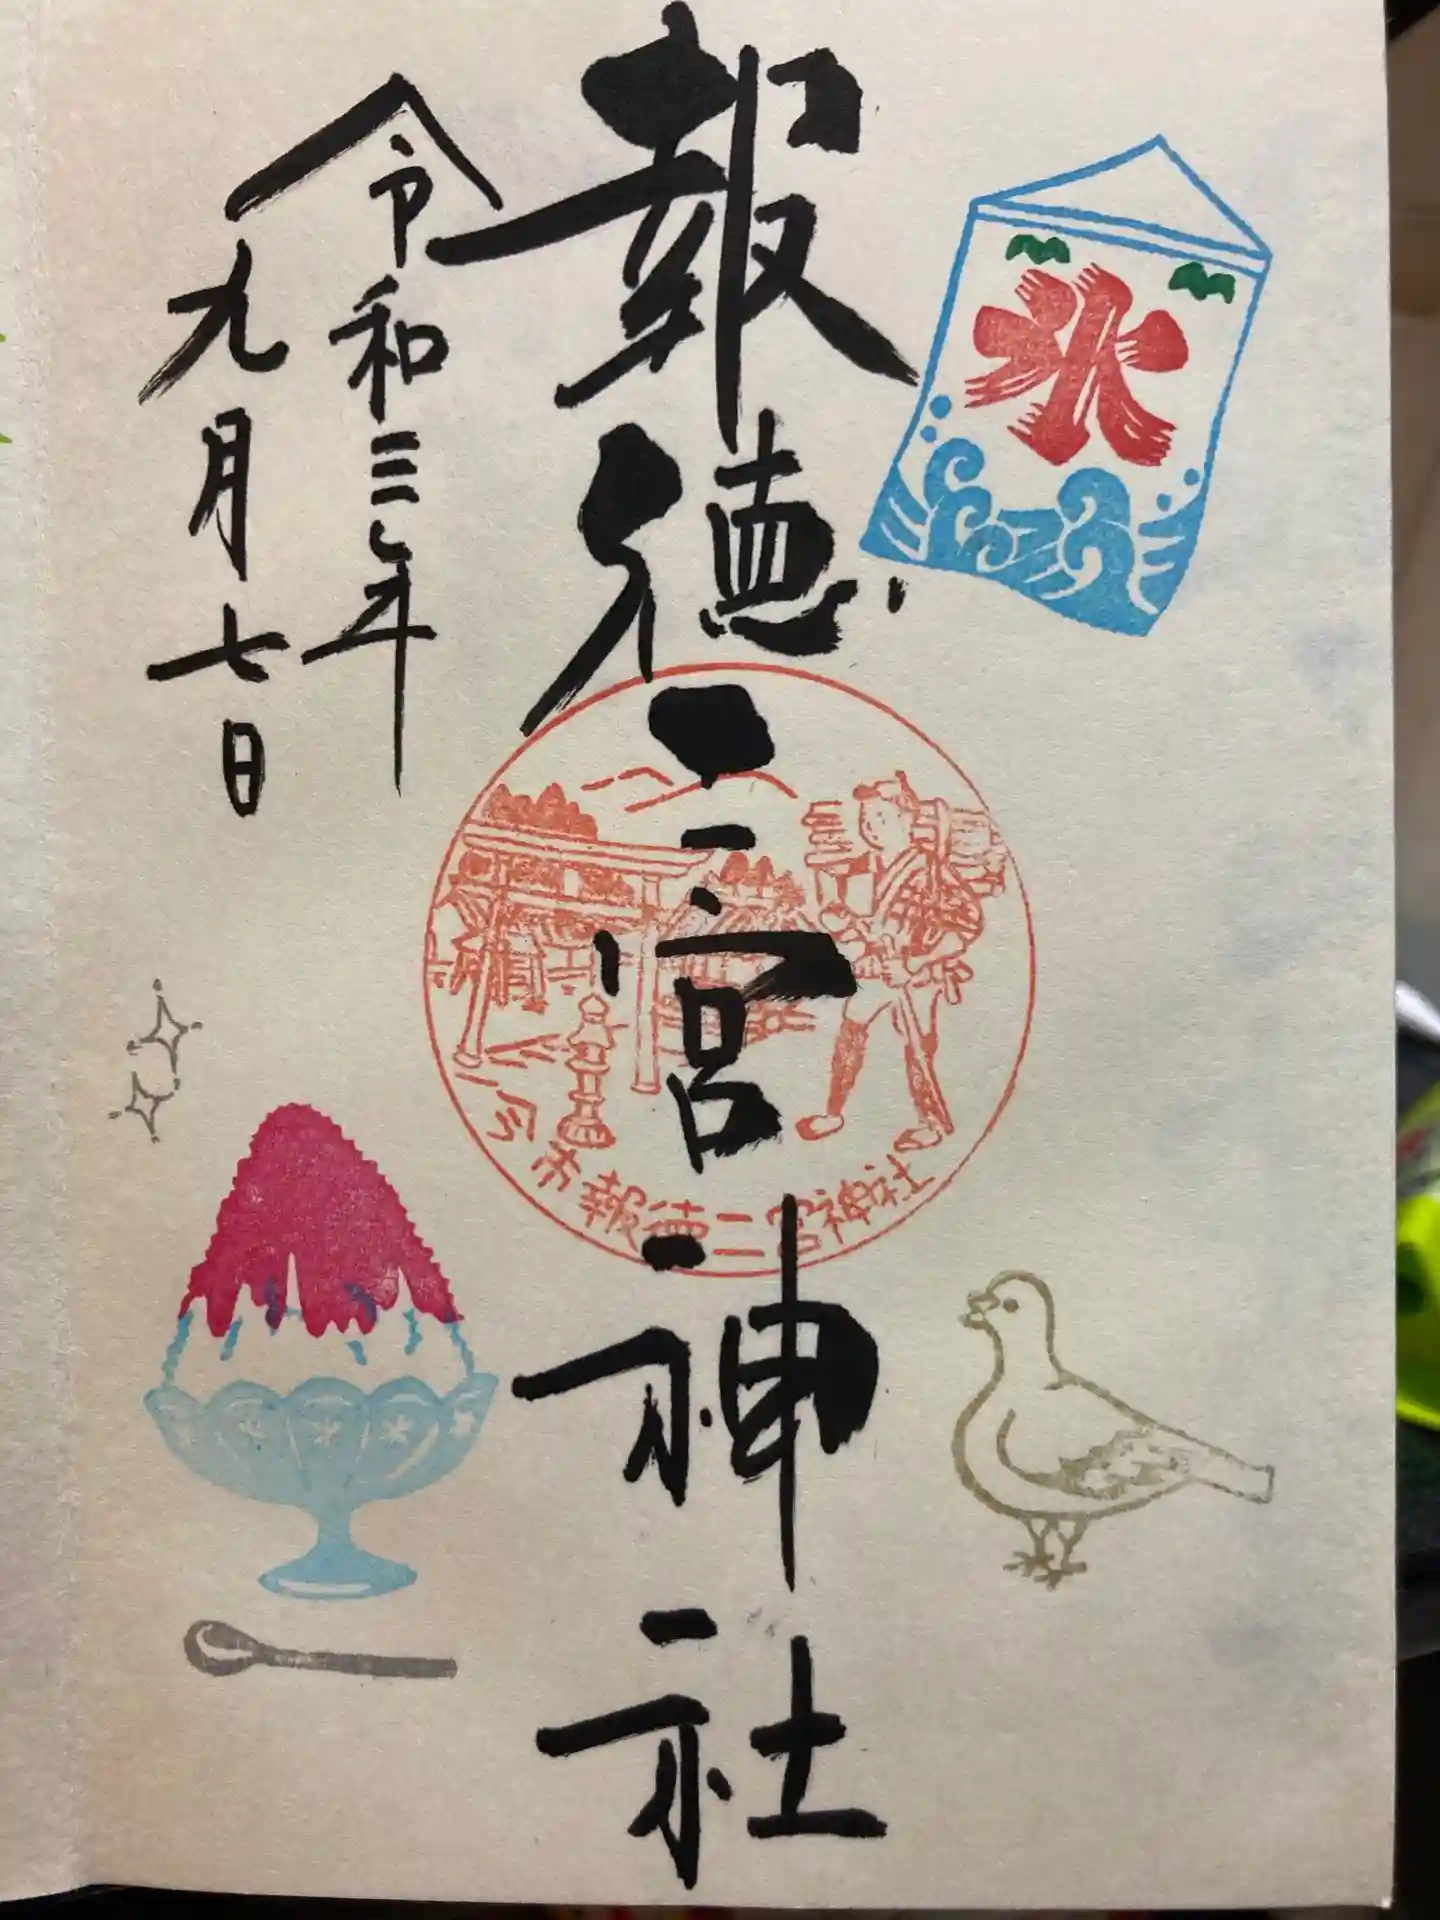 氷
報徳二宮神社
今市報徳二宮神社
令和三年
九月七日